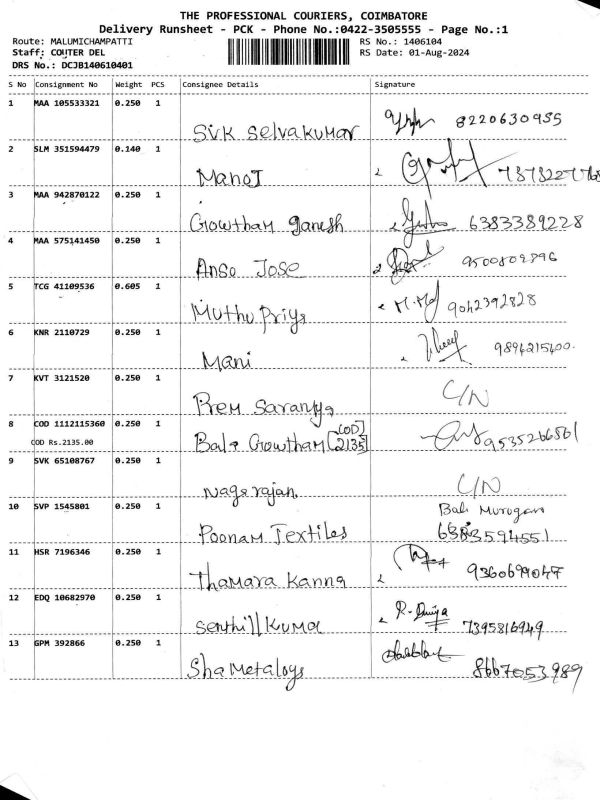 THE PROFESSIONAL COURIERS, COIMBATORE
Delivery Runsheet - PCK - Phone No.:0422-3505555 - Page No.:1
Route: MALUMICHAMPATTI RS No.: 1406104
Staff: COUTER DEL RS Date: 01-Aug-2024
DRS No.: DCJB140610401
S No Consignment No Weight PCS Consignee Details Signature
1 MAA 105533321 0.250 1
SVK Selvakumar 8220630955
2 SLM 351594479 0.140 1
Manoj 7373227768
3 MAA 942870122 0.250 1
Gowtham Ganesh 6383389228
4 MAA 575141450 0.250 1
Anso Jose 9500802896
5 TCG 41109536 0.605 1
Muthu Priya 9042392828
6 KNR 2110729 0.250 1
Mani 9894215400
7 KVT 3121520 0.250 1
Prem Saranya C/N
8 COD 1112115360 0.250 1
COD Rs.2135.00 Bala Gowtham [COD 2135] 9535266561
9 SVK 65108767 0.250 1
Nagarajan C/N
10 SVP 1545801 0.250 1 Bali Murugan
Poonam Textiles 6383594551
11 HSR 7196346 0.250 1
Thamara Kanna 9360699047
12 EDQ 10682970 0.250 1
Senthill Kumar 7395816949
13 GPM 392866 0.250 1
Sha Metaloys 8667053989